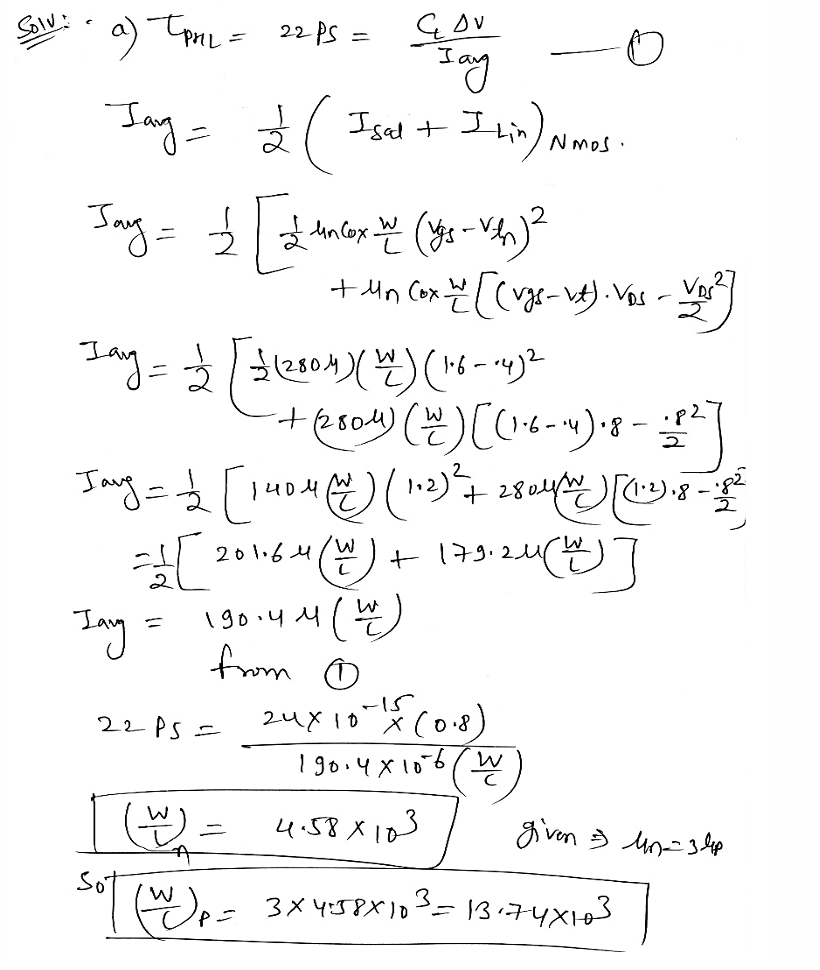 Solv: · a) τPHL = 22 PS = CL ΔV / Iavg —— ①
Iavg = 1/2 ( Isat + ILin) Nmos.
Iavg = 1/2 [ 1/2 μn Cox W/L (Vgs - Vth)²
+ μn Cox W/L [(Vgs - Vt) · VDS - VDS²/2]
Iavg = 1/2 [ 1/2 (280 μ) (W/L) (1.6 - .4)²
+ (280μ) (W/L) [(1.6 - .4) .8 - .8²/2]
Iavg = 1/2 [ 140 μ (W/L) (1.2)² + 280μ(W/L) [(1.2) .8 - .8²/2]
= 1/2 [ 201.6 μ (W/L) + 179.2 μ (W/L) ]
Iavg = 190.4 μ (W/L)
from ①
22 PS = 24 × 10⁻¹⁵ × (0.8) / 190.4 × 10⁻⁶ (W/L)
(W/L)n = 4.58 × 10³ given ⇒ μn = 3μp
So, (W/L)P = 3 × 4.58 × 10³ = 13.74 × 10³